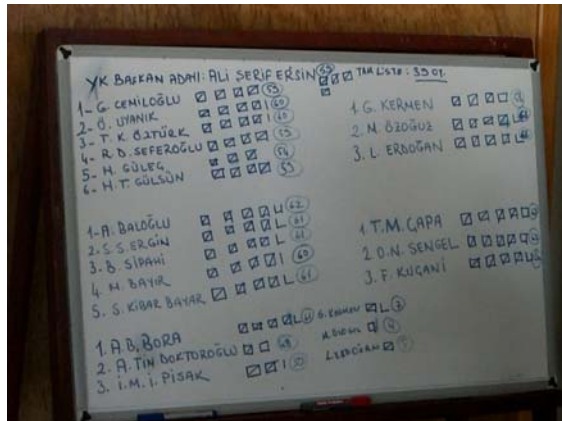 YK BAŞKAN ADAYI: ALİ ŞERİF ERSİN 59 TAM LİSTE: 39 OY.
1- G. CEMİLOĞLU 59
2- Ö. UYANIK 60
3- T. K. ÖZTÜRK 60
4- R. D. SEFEROĞLU 59
5- H. GÜLEÇ
6- H. T. GÜLSÜN 59
1. G. KERMEN
2. M. ÖZOĞUZ
3. L. ERDOĞAN
1- A. BALOĞLU 62
2. S. S. ERGİN 61
3. B. SİPAHİ 61
4. M. BAYIR 60
5. S. KİBAR BAYAR 61
1. T. M. ÇAPA
2. O. N. ŞENGEL
3. F. KUGANİ
1. A. B. BORA
2. A. TIN DOKTOROĞLU
3. İ. M. İ. PİSAK
G. KERMEN
L. ERDOĞAN